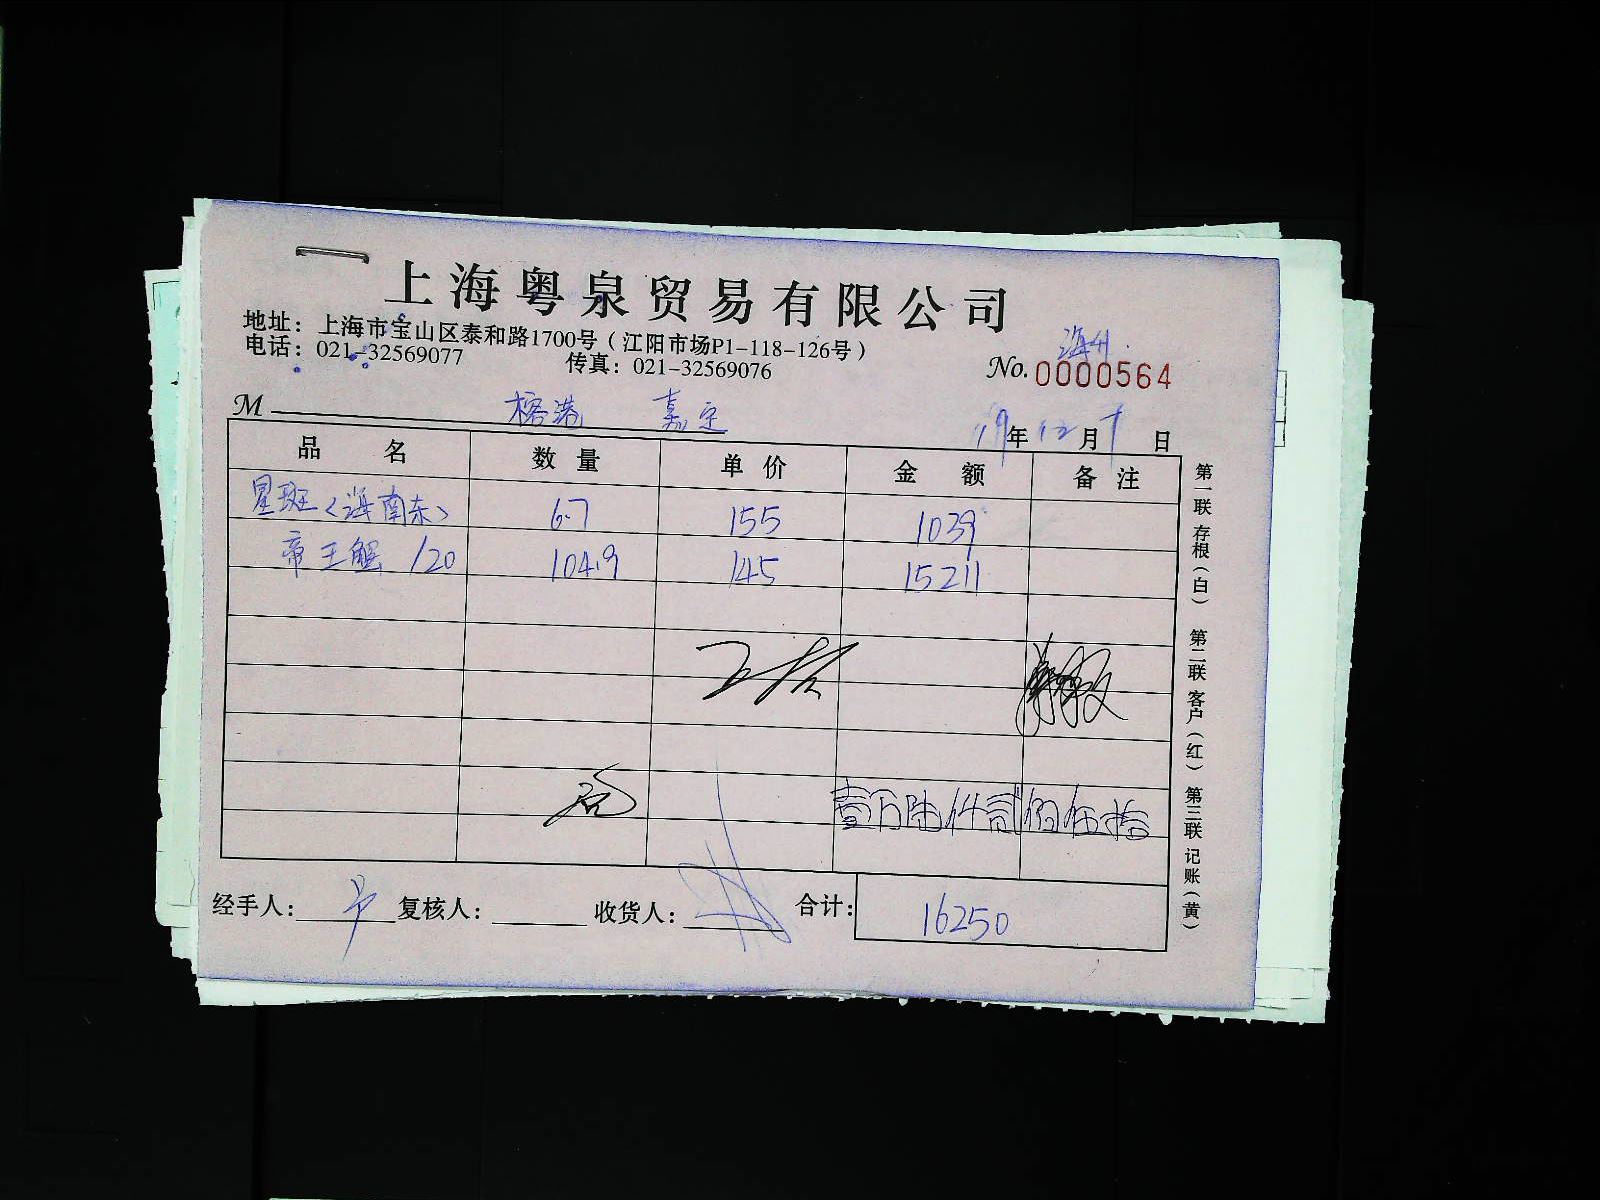 上海粤泉贸易有限公司
地址：上海市宝山区泰和路1700号（江阳市场P1-118-126号）
电话：021-32569077 传真：021-32569076
海外
No. 0000564
M 榕港 嘉定
19年12月 日
品名 数量 单价 金额 备注
星斑〈海南东〉 6.7 155 1039
帝王蟹 120 104.9 145 15211
壹万陆仟贰佰伍拾
经手人： 复核人： 收货人： 合计： 16250
第一联 存根（白） 第二联 客户（红） 第三联 记账（黄）